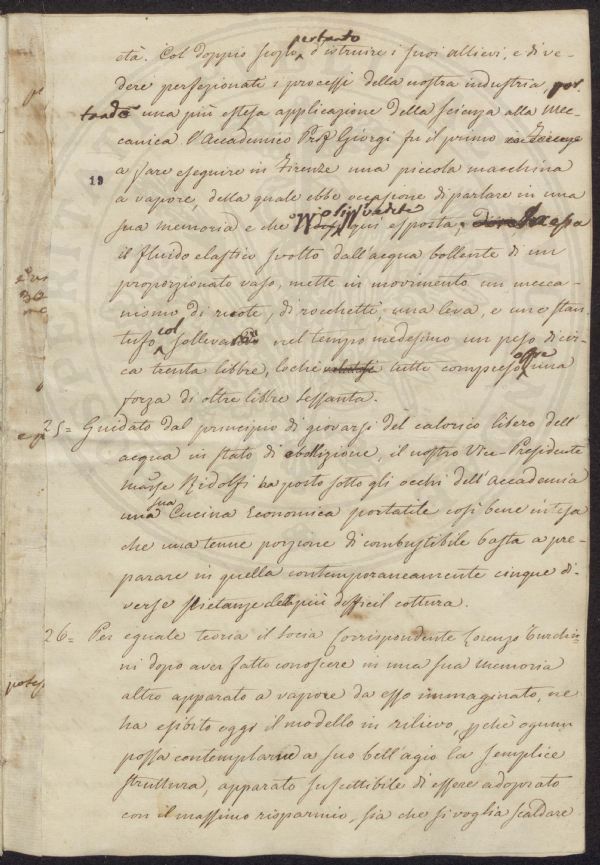 età. Col doppio scopo pertanto d'istruire i suoi allievi, e di ve-
dere perfezionati i processi della nostra industria, por
tando una più estesa applicazione della scienza alla Mec-
canica l'Accademico Prof. Giorgi fu il primo
19
a fare eseguire in Firenze una piccola macchina
a vapore, della quale ebbe occasione di parlare in una
sua memoria e che oggi qui esposta, Da essa
il fluido elastico svolto dall'acqua bollente di un
proporzionato vaso, mette in movimento un mecca-
nismo di ruote, di rocchetti, una leva, e uno stan-
tuffo col sollevare nel tempo medesimo un peso di cir-
ca trenta libbre, loché tutto compreso offre una
forza di oltre libbre sessanta.
25= Guidato dal principio di giovarsi del calorico libero dell'
acqua in stato di ebollizione, il nostro Vice-Presidente
March.se Ridolfi ha posto sotto gli occhi dell'Accademia
una sua Cucina Economica portatile così bene intesa
che una tenue porzione di combustibile basta a pre-
parare in quella contemporaneamente cinque di-
verse pietanze della più difficil cottura.
26= Per eguale teoria il Socio Corrispondente Lorenzo Turchi-
ni dopo aver fatto conoscere in una sua memoria
altro apparato a vapore da esso immaginato, ne
ha esibito oggi il modello in rilievo, perché ognun
possa contemplarne a suo bell'agio la semplice
struttura, apparato suscettibile di essere adoprato
con il massimo risparmio, sia che si voglia scaldare